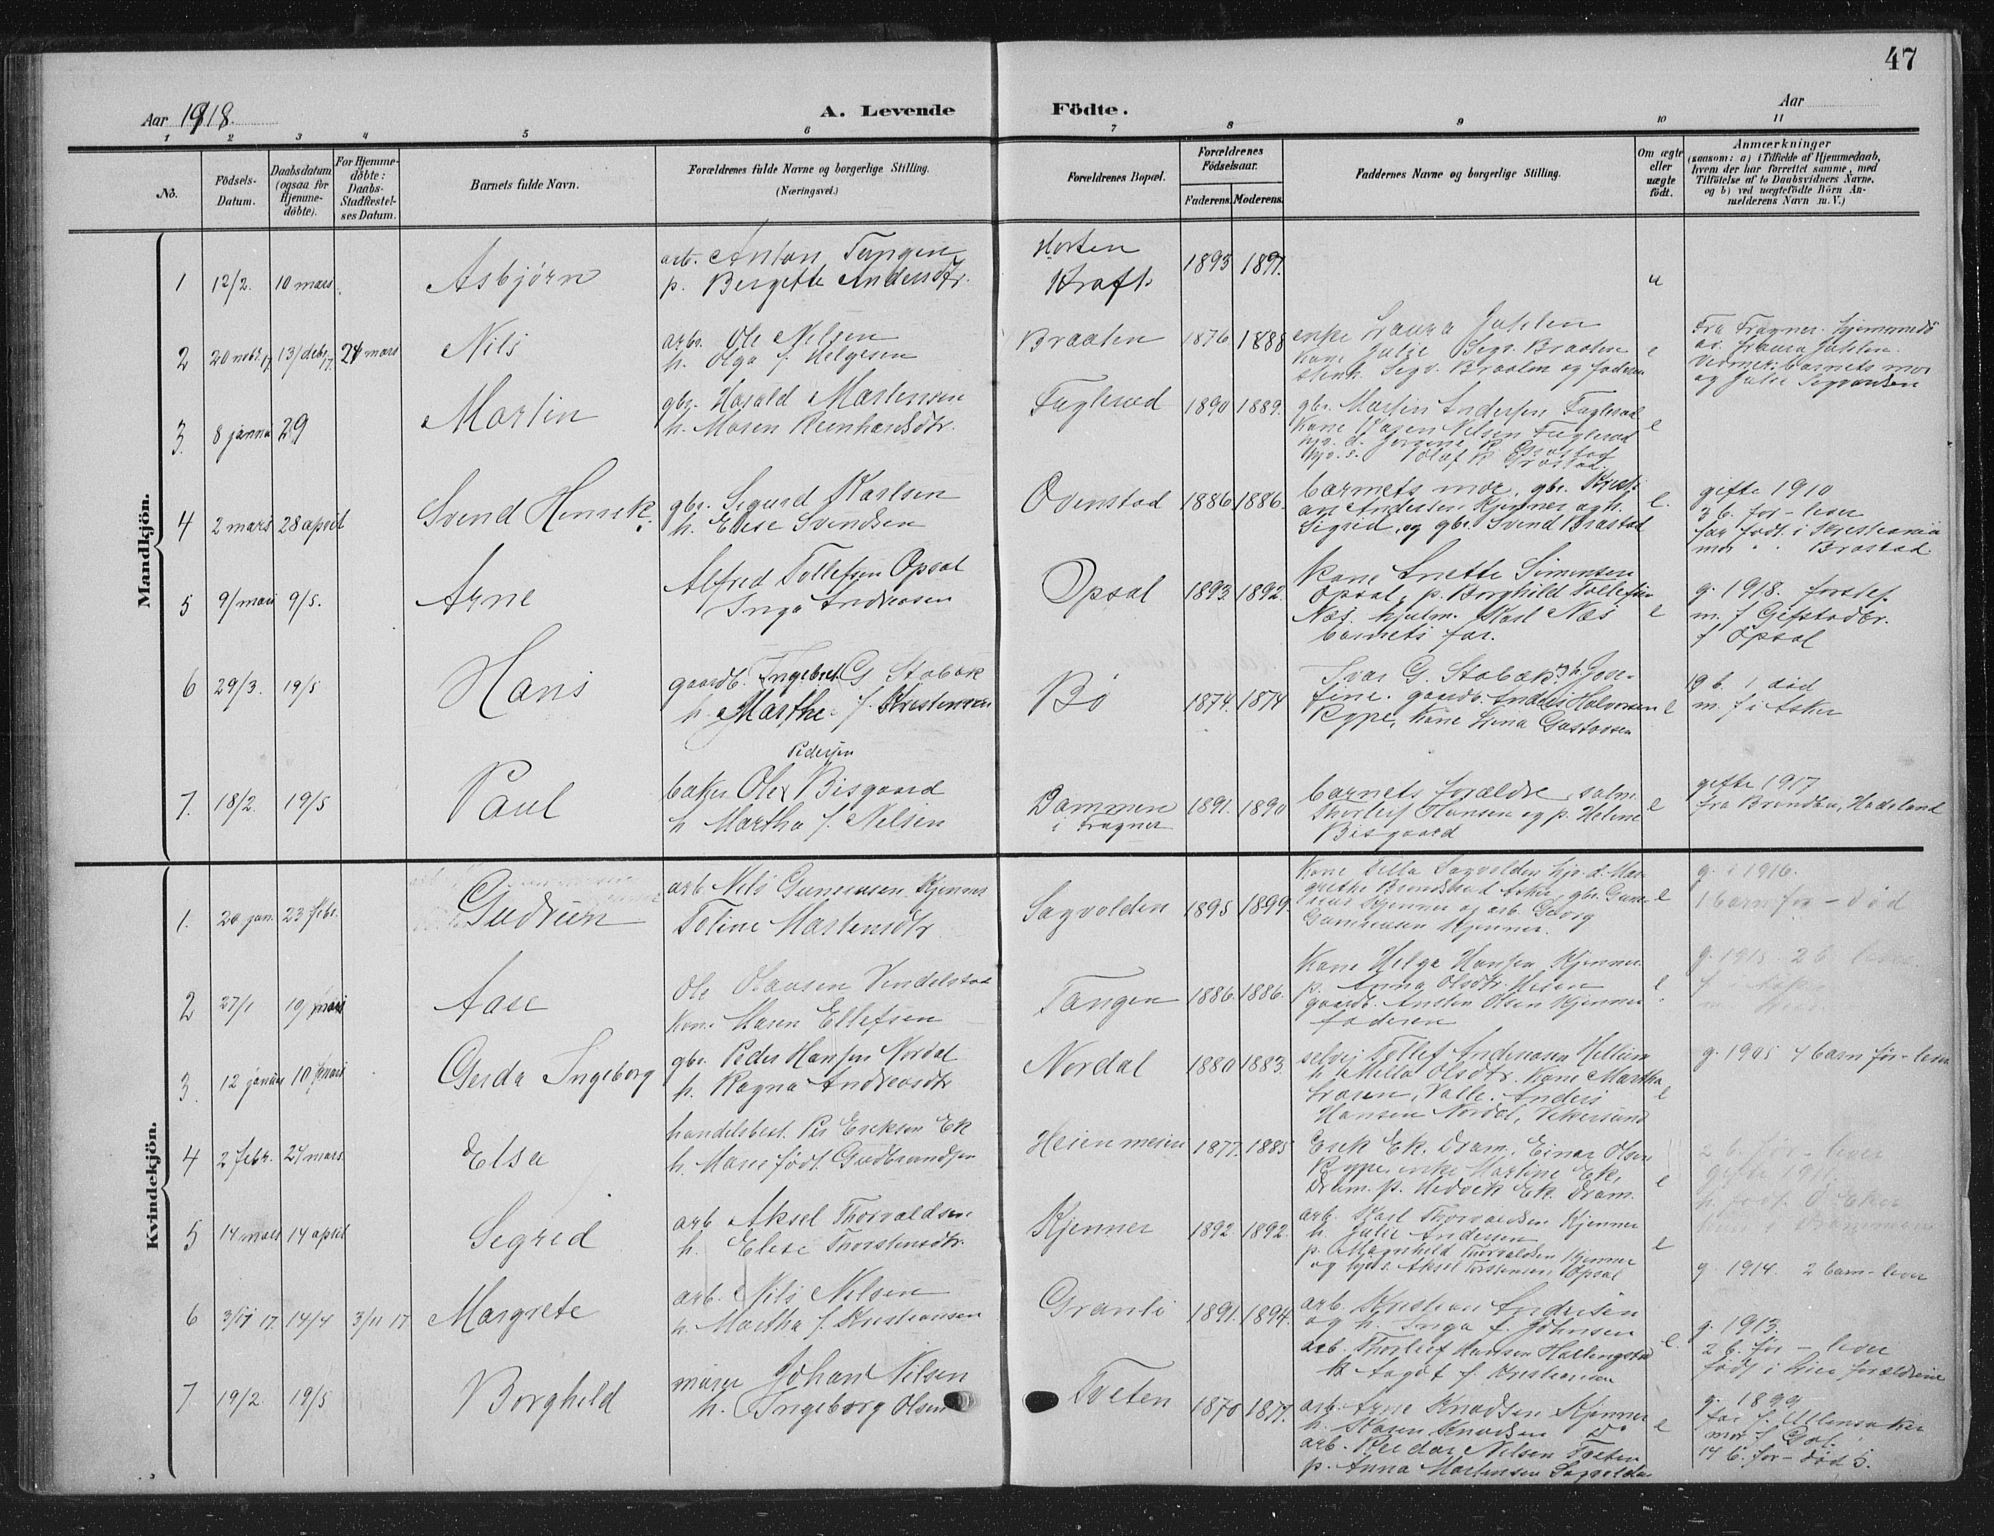 47
Aar 1918.
A. Levende Födte.
Aar
1 2 3 4 5 6 7 8 9 10 11
No.
Födsels-Datum.
Daabsdatum (ogsaa for Hjemmedöbte).
For Hjemmedöbte: Daabs-Stadfæstelses Datum.
Barnets fulde Navn.
Forældrenes fulde Navne og borgerlige Stilling. (Næringsvei.)
Forældrenes Bopæl.
Forældrenes Födselsaar.
Faderens. Moderens.
Faddernes Navne og borgerlige Stilling.
Om ægte eller uægte födt.
Anmærkninger
(saasom: a) i Tilfælde af Hjemmedaab, hvem der har forrettet samme, med Tilföielse af to Daabsvidners Navne, og b) ved uægtefödte Börn Anmelderens Navn m. V.)
Mandkjön.
1 12/2. 10 mars Asbjørn
arb. Anton Tangen
p. Bergitte Andersdtr.
Horten
Kraft
1893 1897. u
2 20 nobr. 17 13/debr 17. 24 mars Nils
arb. Ole Nilsen
h. Olga f. Helgesen
Braaten 1876 1888
enke Laura Jahlen
kone Julie Sigv. Braaten
Sigv. Braaten og faderen
e
Fra Fragner. hjemmedø
av Laura Jahlen.
vidner: barnets mor
og Julie Sigvardsen
3. 8 janua 29 Martin
gbr. Harald Martensen
h. Maren Reinhardsdtr.
Fuglerud 1890 1889.
gbr. Martin Andersen Fuglerud
kone Karen Nilsen Fuglerud
Olaf R. Grøstad
e
4 2 mars 28 april Svend Henrik.
gbr. Sigurd Karlsen
h. Elise Svendsen
Ovenstad 1886 1886.
barnets mor, gbr. Kristian Andersen Kjenner og h.
Sigrid, og gbr. Svend Brastad
e.
gifte 1910
3 b. før - lever
far født i Kristiania
mor " " Brastad.
5 9/mars 9/5. Arne
Alfred Tollefsen Opsal
Inga Andreasen
Opsal 1893. 1892.
Kone Anette Simensen
Opsal, p. Borghild Tollefsen
Næs. hjulm. Karl Næs
barnets far.
e
g. 1918.
m. f Gifstadbr.
f Opsal
6 29/3. 19/5 Hans
gaardb. Ingebret G Stabæk
h. Marthe f. Kristensen
Bø 1874. 1874
Ivar G. Stabæk, h Josefine. gaardb. Anders Halvorsen
Rype, kone Lina Gustavsen
e
19 b. 1 død
m. f i Asker
7. 18/2. 19/5 Paul
Pedersen
baker Ole Bisgaard
h Martha f. Nilsen
Dammen
i Fragner
1891. 1890
barnets forældre, salm.
Thorleif Hansen og p. Helene
Bisgaard
e
gifte 1917
fra Brandbu, Hadeland
Kvindekjön.
1. 20 jan. 23 febr. Gudrun
arb Nils Gunerusen Kjenner
Toline Martensdtr
Sagvolden 1895 1899.
Kone Lilla Sagvolden hjv. d. Margrethe Asker, gbr. Gunerius Kjenner og arb. Georg
Gunerusen Kjenner.
e
g. i 1916.
1 barn før - død
2 27/1 10 mars Aase
Ole Olausen Vendelstad
Kone Maren Ellefsen
Tangen 1886. 1886.
Kone Helga Hansen Kjenner
p. Anna Olsdtr. Heien
gaardb. Anton Olsen Kjenner
faderen
e
g. 1915. 2 b. lever
3. 12 januar 10 mars Gerda Ingeborg
gbr. Peder Hansen Nordal
h. Ragna Andreasdtr
Nordal 1880 1883.
selvei Tollef Andreasen Hellum
h Milla Olsdtr. Kone Martha
Larsen, Valle. Anders
Hansen Nordal, Vikersund
e
g. 1905 4 barn før - lever
4 2 febr. 24 mars Elsa
handelsbest. Per Eriksen Ek
h. Marie født Gudbrandsen
1877. 1885
Erik Ek. Dram. Einar Olsen
Rype, enke Martine Ek,
Dram. p. Hedvik Ek. Dram.
e
2 b. før - lever
5 14 mars 14 april Sigrid
arb Aksel Thorvaldsen
h. Elise Thorstensdtr.
Kjenner 1892. 1892.
arb. Karl Thorvaldsen Kjenner
h. Julie Andersen
p. Magnhild Thorvaldsen Kjenner
og hjv. s. Aksel Torstensen, Opsal
e
g. 1914. 2 barn - lever
6 3/11 17. 14/4 3/11 17 Margrete
arb. Nils Nilsen
h. Martha f. Kristiansen
Granli 1891. 1894.
arb. Kristian Andersen
og h. Inga f. Johnsen
arb. Thorleif Hansen Hallingstad
h Aagot f. Kristiansen
e
g. 1913.
2 b. før - lever
født i Lier forældrene
7 19/2. 19/5 Borghild
murer Johan Nilsen
h. Ingeborg Olsen
Tveten 1870 1877.
arb. Arne Knudsen Kjenner
h. Karen Knudsen Do
arb. Reidar Nilsen Tveten
p. Anna Martinsen Sagvolden
e
g. 1899
far f. Ullensaker
mor f Gol.
14 b. før - død 5.